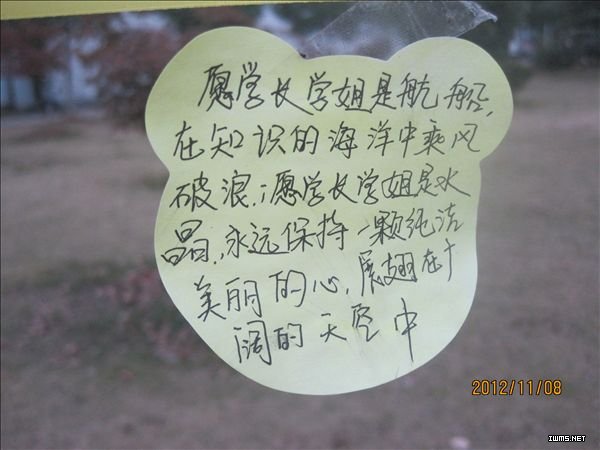 愿学长学姐是航船,
在知识的海洋中乘风
破浪;愿学长学姐是水
晶,永远保持一颗纯洁
美丽的心,展翅在广
阔的天空中
2012/11/08
IWMS.NET